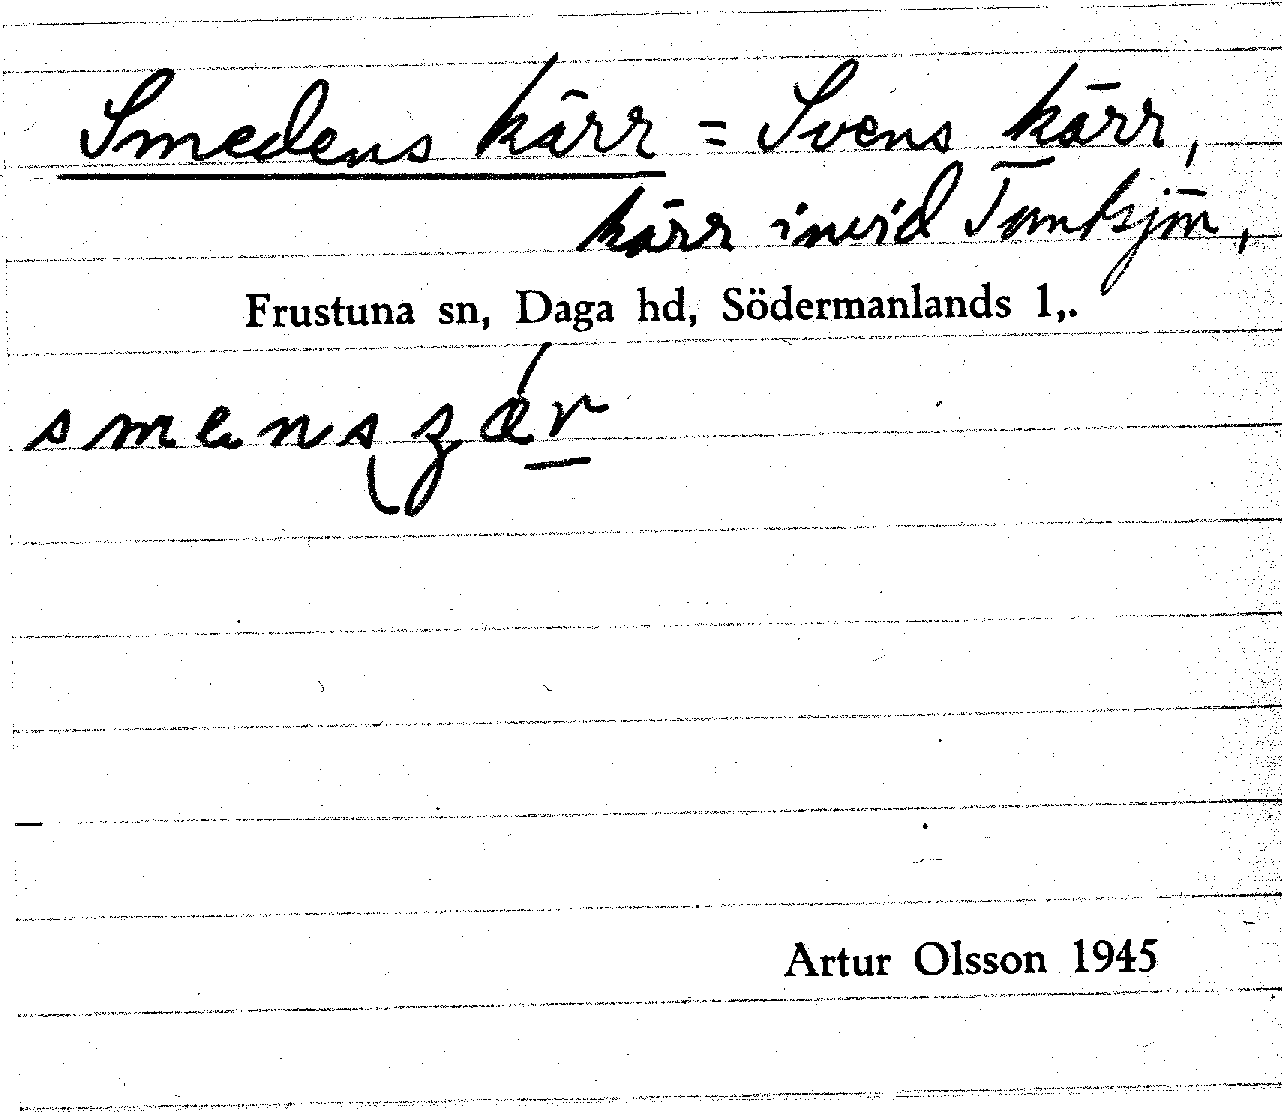 Smedens kärr = Svens kärr,
kärr invid
Frustuna sn, Daga hd, Södermanlands l,.
Artur Olsson 1945